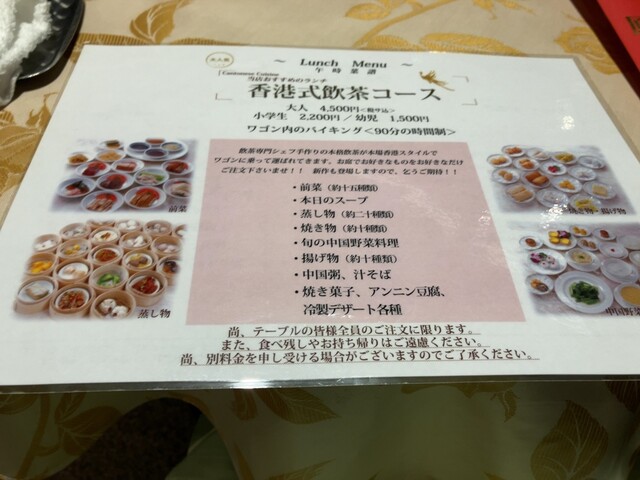 大人気
~ Lunch Menu ~
午時菜譜
Cantonese Cuisine
当店おすすめのランチ
香港式飲茶コース
大人 4,500円<税サ込>
小学生 2,200円 / 幼児 1,500円
ワゴン内のバイキング<90分の時間制>
飲茶専門シェフ手作りの本格飲茶が本場香港スタイルで
ワゴンに乗って運ばれてきます。お席でお好きなものをお好きなだけ
ご注文下さいませ!! 新作も登場しますので、乞うご期待!!
・前菜(約十五種類)
・本日のスープ
・蒸し物(約二十種類)
・焼き物(約十種類)
・旬の中国野菜料理
・揚げ物(約十種類)
・中国粥、汁そば
・焼き菓子、アンニン豆腐、
冷製デザート各種
前菜
蒸し物
焼き物・揚げ物
中国野菜
尚、テーブルの皆様全員のご注文に限ります。
また、食べ残しやお持ち帰りはご遠慮ください。
尚、別料金を申し受ける場合がございますのでご了承ください。